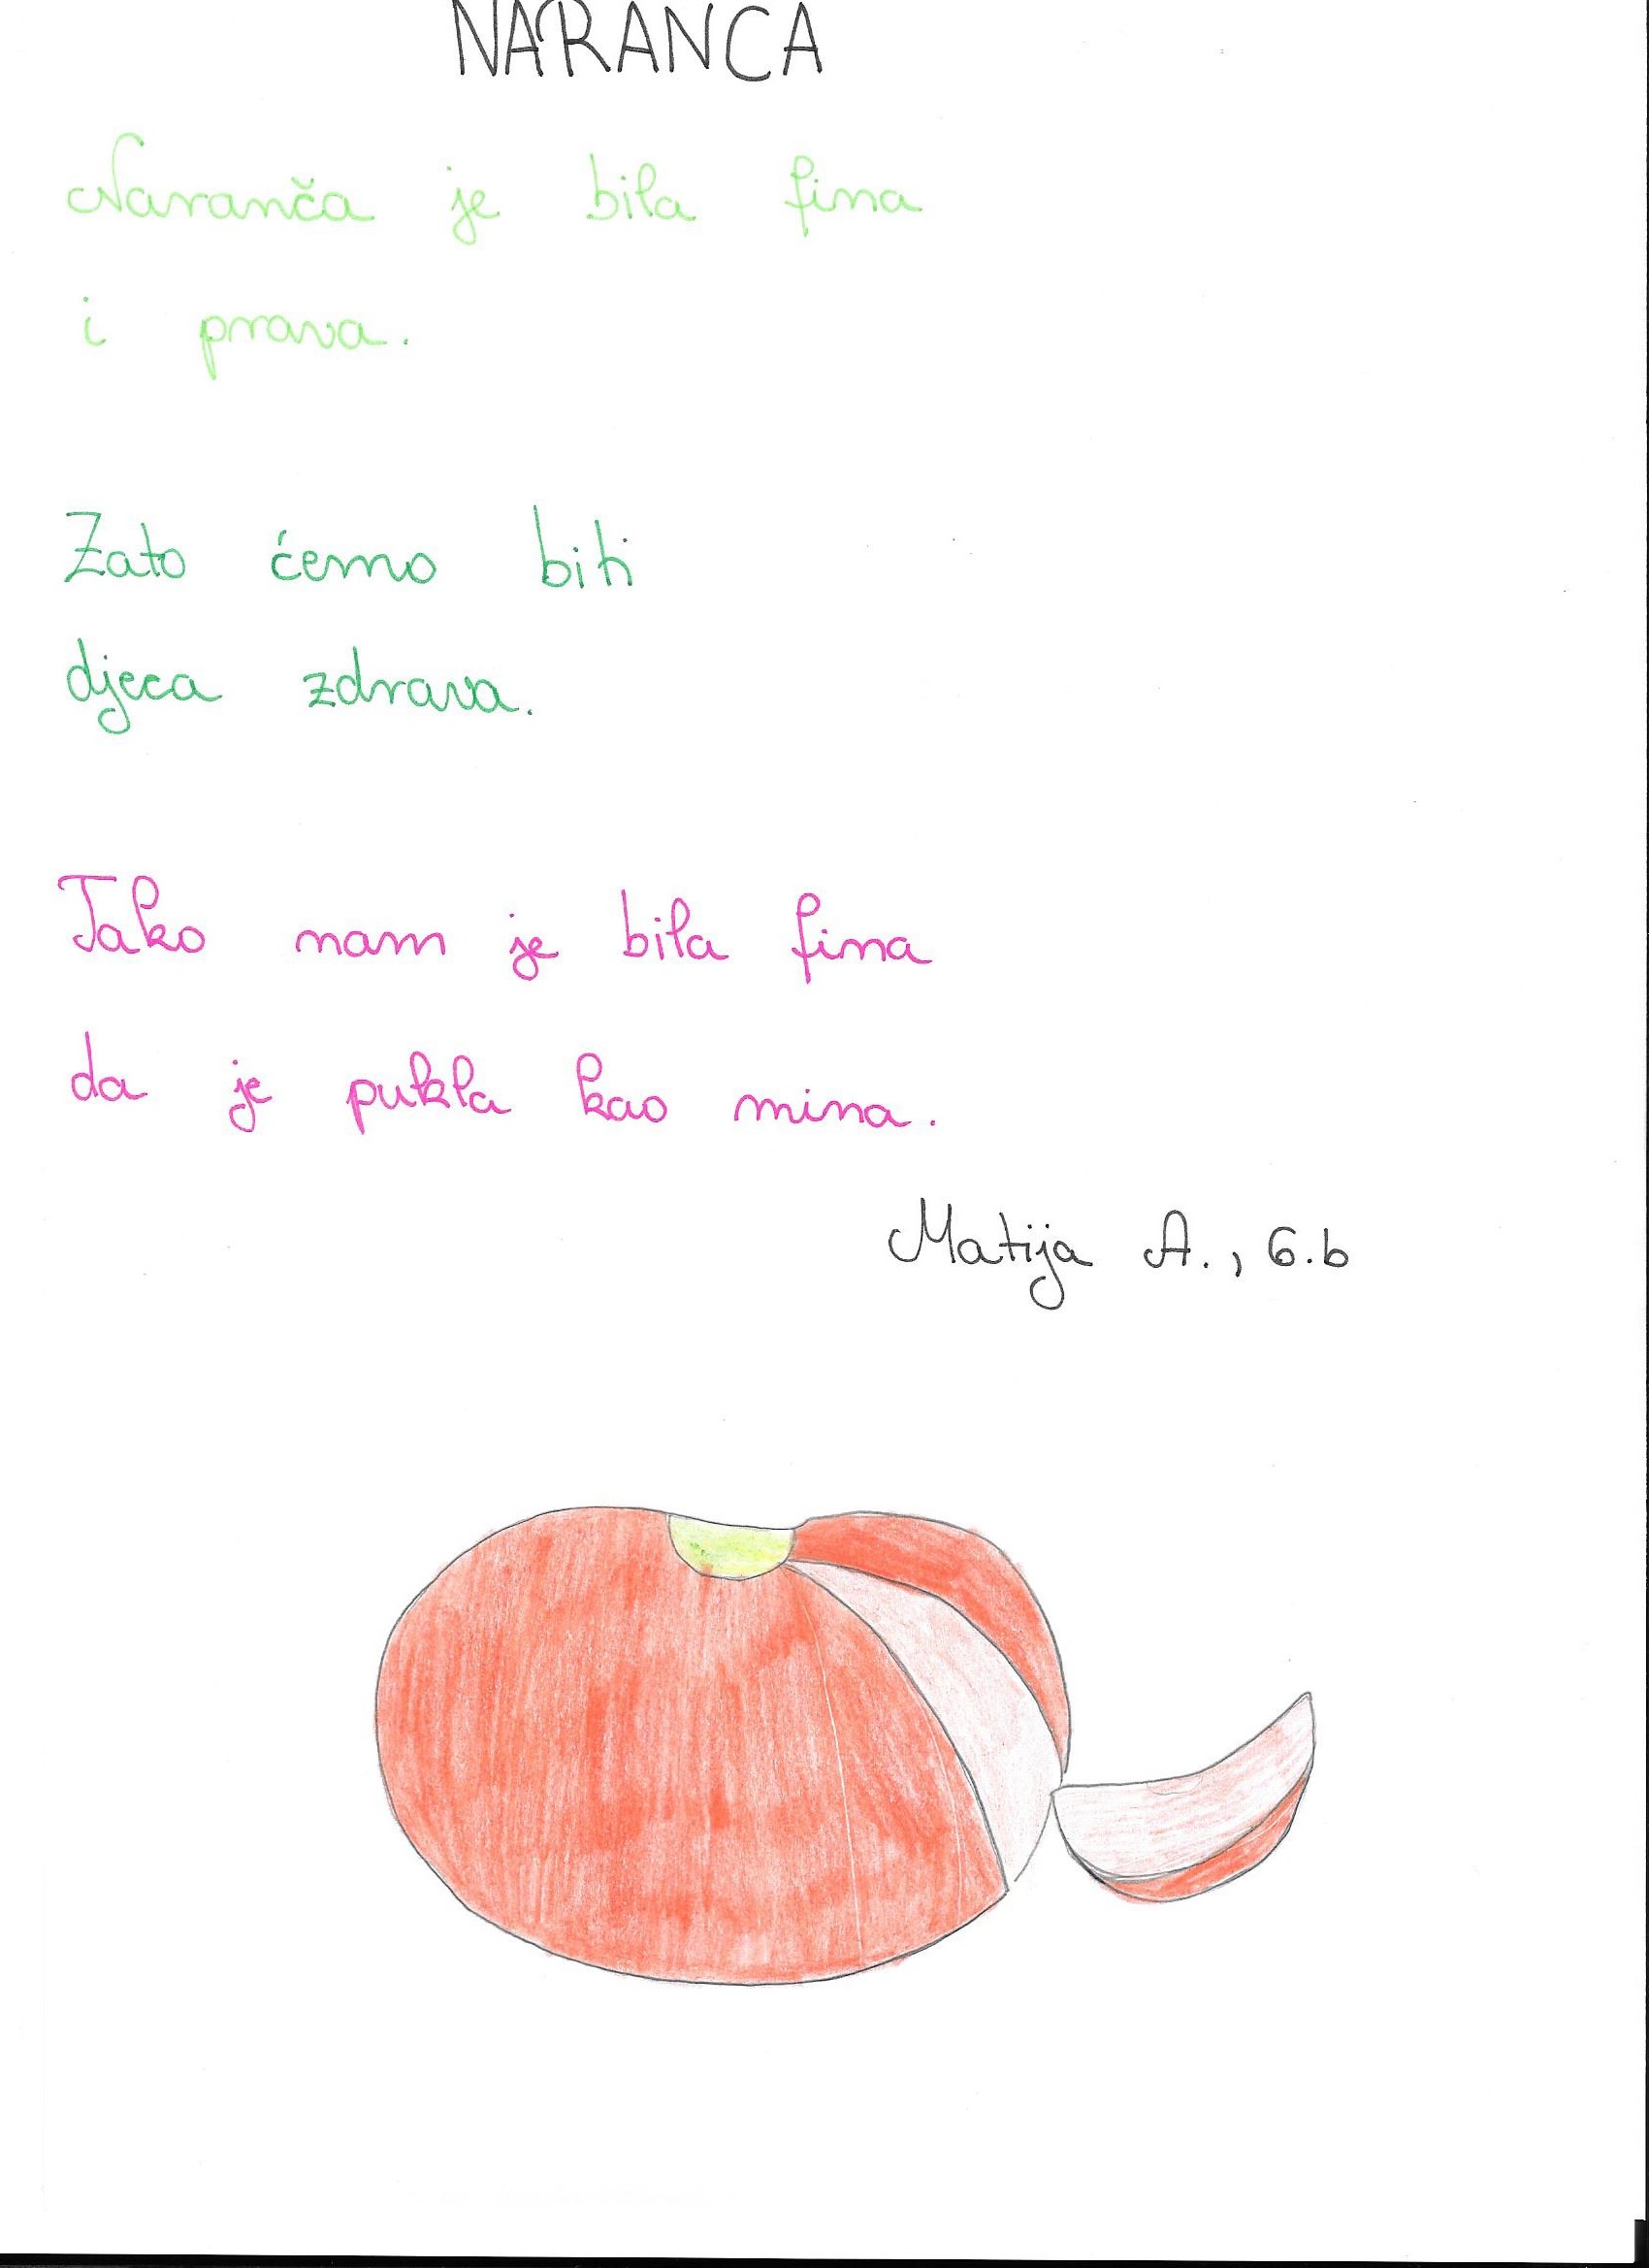 NARANCA
Naranča je bila fina
i prava.
Zato ćemo biti
djeca zdrava.
Tako nam je bila fina
da je pukla kao mina.
Matija A., 6.b